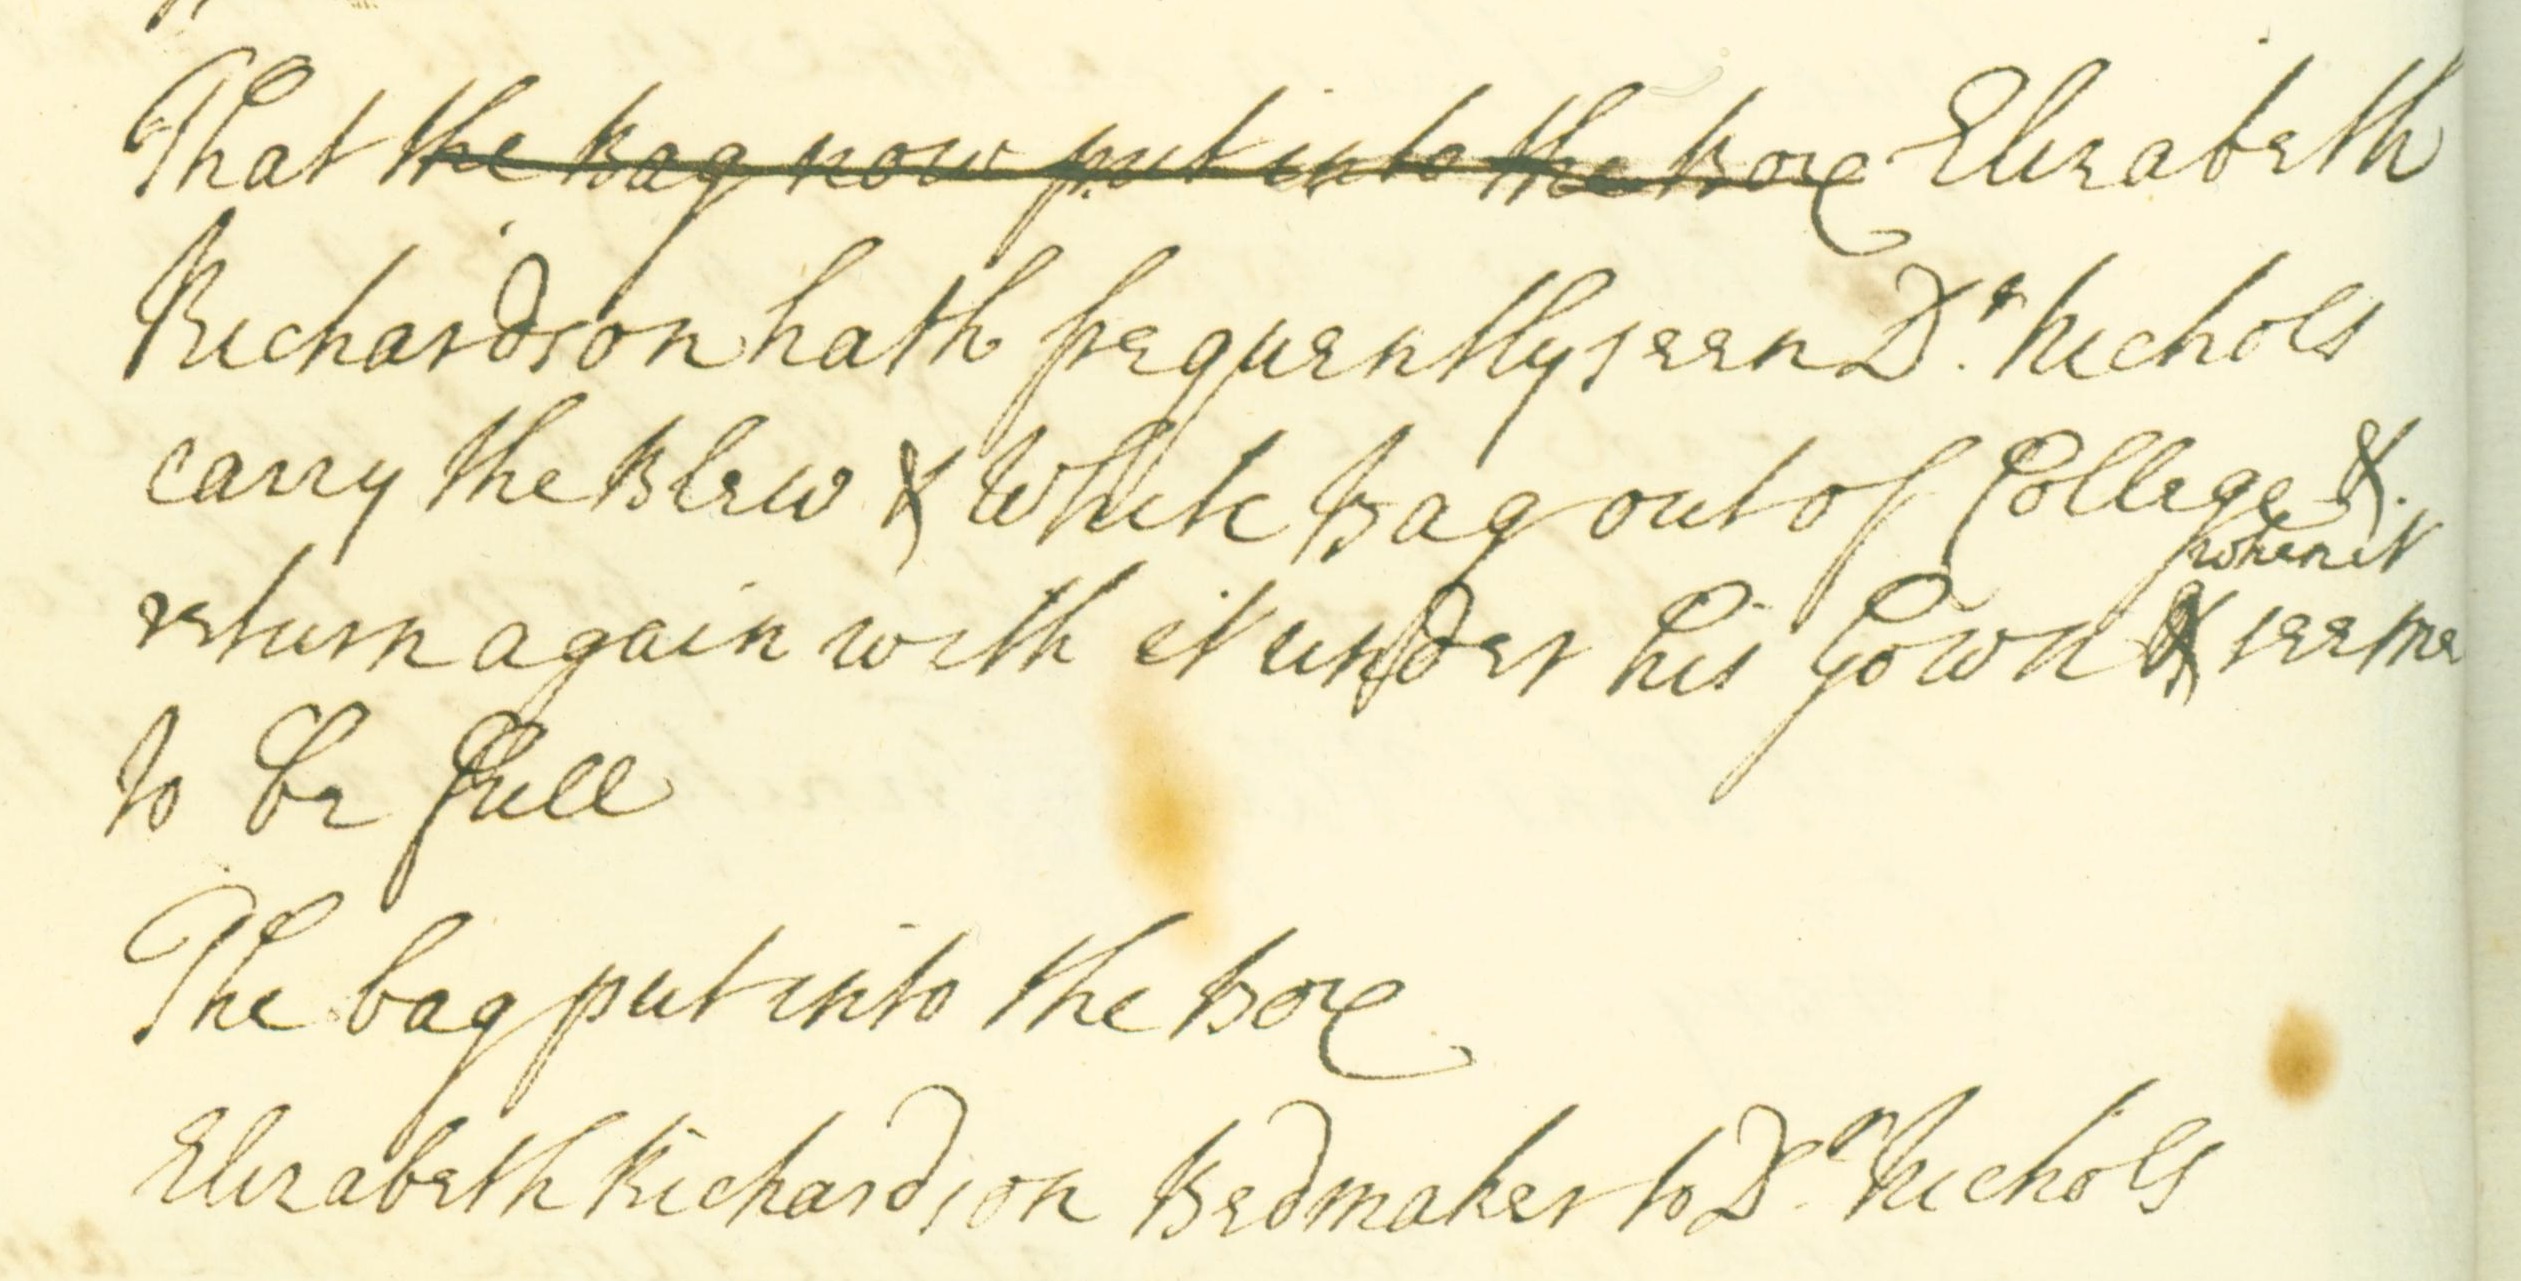 That the Bag now put into the Boxe Elizabeth
Richardson hath frequently seen Dr. Nichols
carry the Blew & White Bag out of College &.
return again with it under his Gown & when it seeme
to be full
The bag put into the Boxe
Elizabeth Richardson Bedmaker to Dr. Nichols